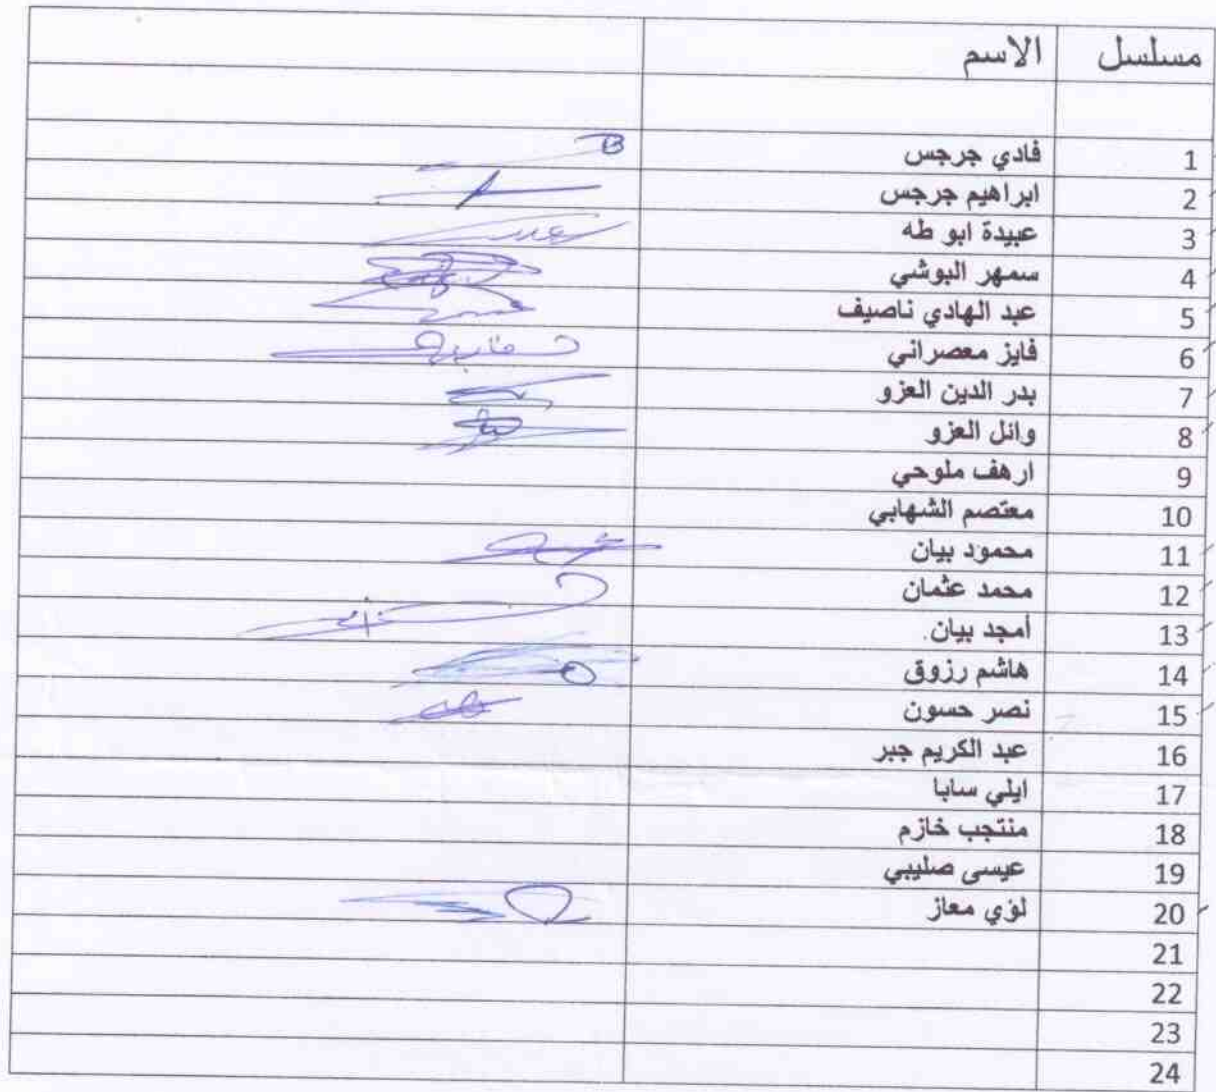 مسلسل الاسم
1 فادي جرجس
2 ابراهيم جرجس
3 عبيدة ابو طه
4 سمهر البوشي
5 عبد الهادي ناصيف
6 فايز معصراني
7 بدر الدين العزو
8 وائل العزو
9 ارهف ملوحي
10 معتصم الشهابي
11 محمود بيان
12 محمد عثمان
13 أمجد بيان.
14 هاشم رزوق
15 نصر حسون
16 عبد الكريم جبر
17 ايلي سابا
18 منتجب خازم
19 عيسى صليبي
20 لؤي معاز
21
22
23
24